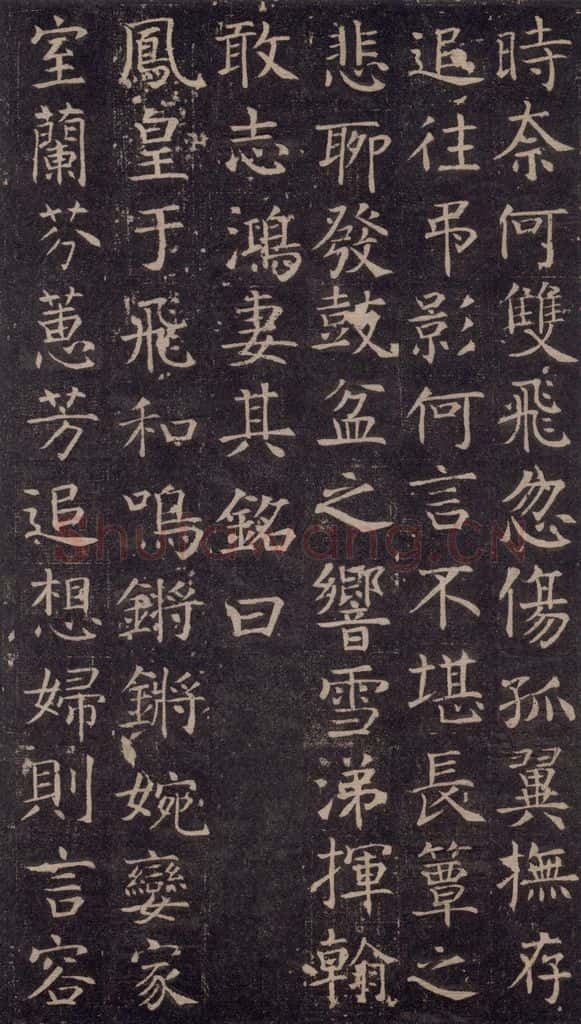 時奈何雙飛忽傷孤翼撫存
追往弔影何言不堪長簟之
悲聊發鼓盆之響雪涕揮翰
敢志鴻妻其銘曰
鳳皇于飛和鳴鏘鏘婉孌家
室蘭芬蕙芳追想婦則言容
shufawang.cn